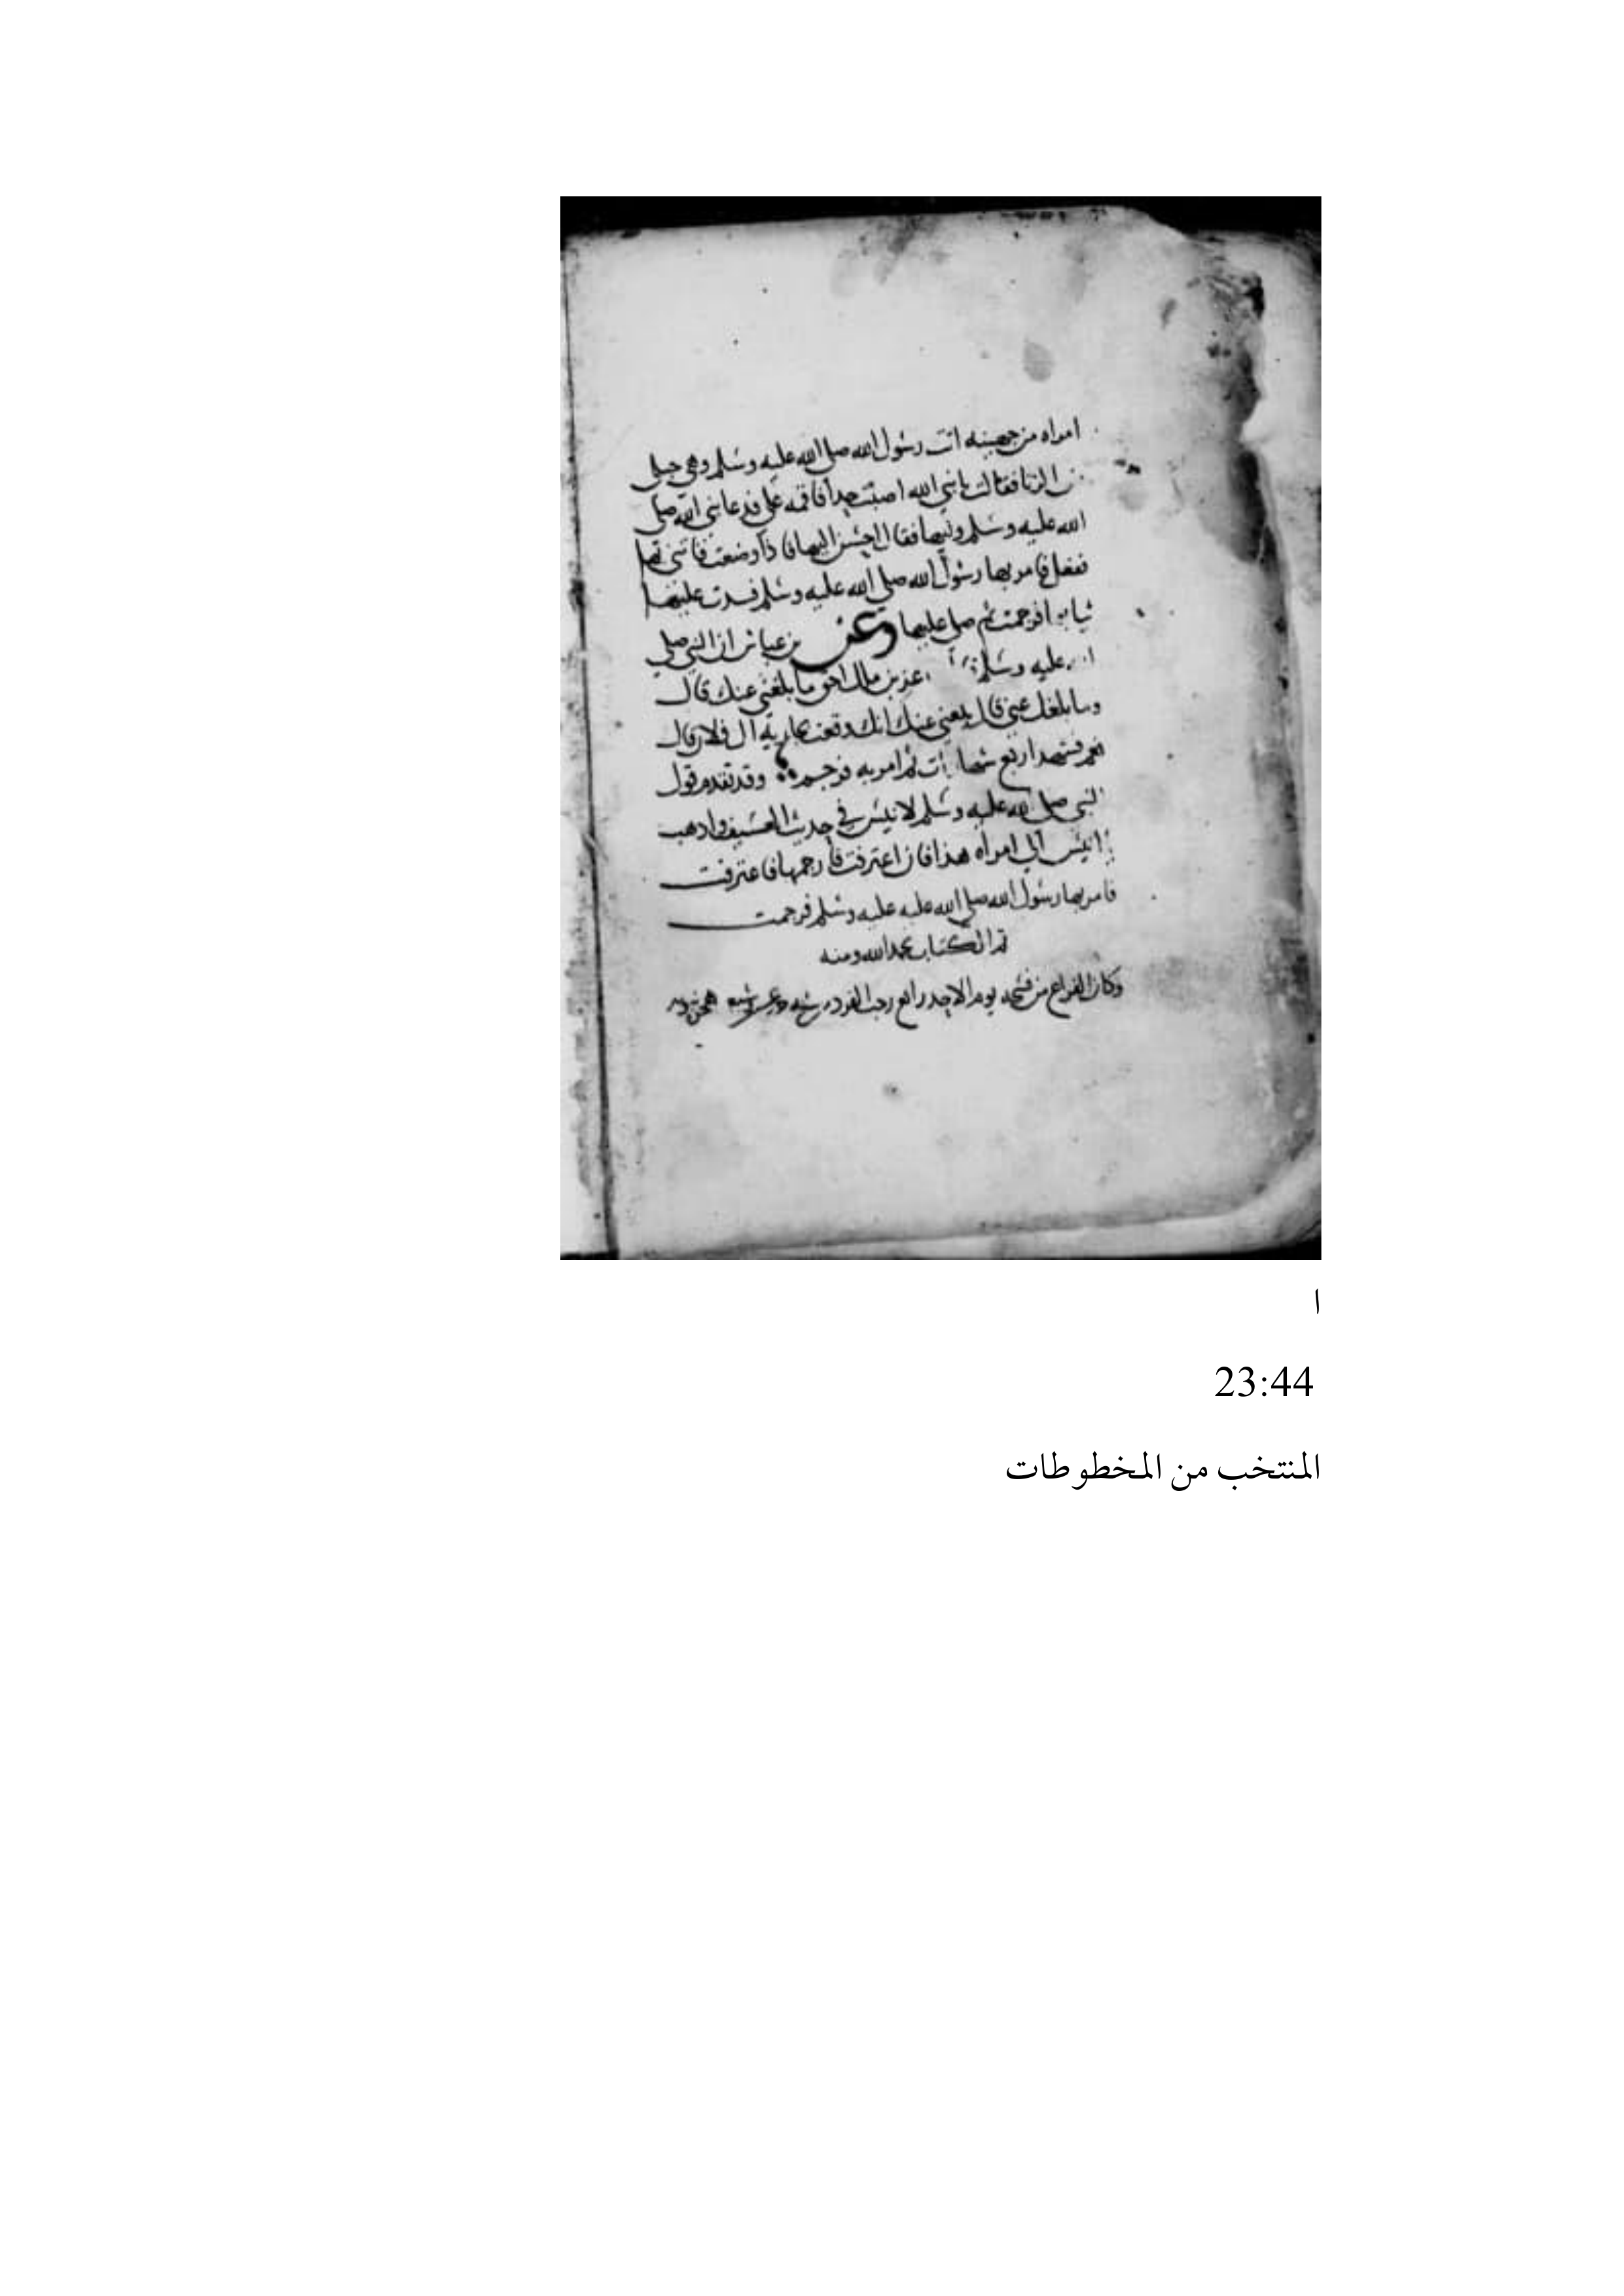 امراه من جهينه اتت رسول الله صلى الله عليه وسلم وهي حبلى
من الزنا فقالت يا نبي الله اصبت حدا فاقمه علي فدعا نبي الله صلى
الله عليه وسلم وليها فقال احسن اليها فاذا وضعت فاتني بها
ففعل فامر بها رسول الله صلى الله عليه وسلم فشدت عليها
ثيابها فرجمت ثم صلى عليها وعن بن عباس ان النبي صلى
الله عليه وسلم ماعز بن ملك احق ما بلغني عنك قال
وما بلغك عني قال بلغني عنك انك وقعت بجارية ال فلان قال
نعم فشهد اربع شهادات ثم امر به فرجم وقد تقدم قول
النبي صلى الله عليه وسلم لانيس في حديث العسيف واذهب
يا انيس الى امراه هذا فان اعترفت فارجمها فاعترفت
فامر بها رسول الله صلى الله عليه عليه وسلم فرجمت
تم الكتاب بحمد الله ومنه
وكان الفراغ من نسخه يوم الاحد رابع رجب الفرد
ا
23:44
المنتخب من المخطوطات